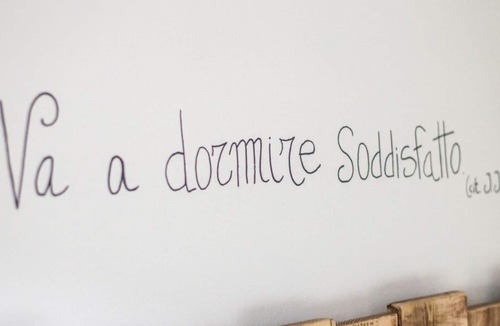 Va a dormire Soddisfatto.
(cit.